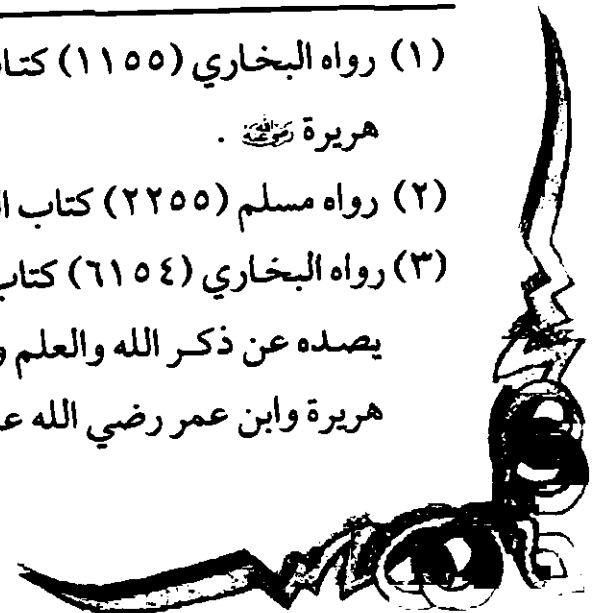 (١) رواه البخاري (١١٥٥) كتا
هريرة رضي الله عنه .
(٢) رواه مسلم (٢٢٥٥) كتاب ا
(٣) رواه البخاري (٦١٥٤) كتاب
يصده عن ذكر الله والعلم و
هريرة وابن عمر رضي الله ع